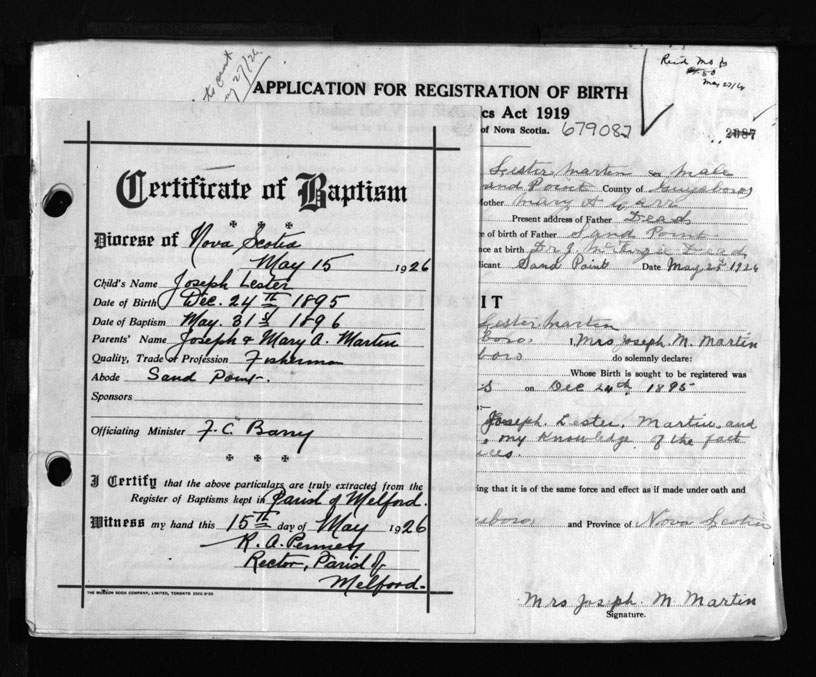 to cent
May 27/26
Rec'd Mo
.50
May 27/26
APPLICATION FOR REGISTRATION OF BIRTH
cs Act 1919
of Nova Scotia. 679087
2087
Certificate of Baptism
Diocese of Nova Scotia
May 15 1926
Child's Name Joseph Lester
Date of Birth Dec. 24th 1895
Date of Baptism May. 31st 1896
Parents' Name Joseph & Mary A. Martin
Quality, Trade or Profession Fisherman
Abode Sand Point.
Sponsors
Officiating Minister F. C. Barry
I Certify that the above particulars are truly extracted from the
Register of Baptisms kept in Parish of Melford.
Witness my hand this 15th day of May 1926
R. A. Penney
Rector, Parish of
Melford.
THE MUSSON BOOK COMPANY, LIMITED, TORONTO
Lester Martin Sex Male
and Point County of Guysboro
Mother Mary A Carr
Present address of Father Dead
e of birth of Father Sand Point
nce at birth Dr J. McKenzie Dead
licant Sand Point Date May 25th 1926
IT
Lester Martin
boro I, Mrs Joseph M. Martin
boro do solemnly declare:
Whose Birth is sought to be registered was
s on Dec 24th 1895
Joseph Lester Martin and
my knowledge of the fact
ces.
ing that it is of the same force and effect as if made under oath and
sboro and Province of Nova Scotia
Mrs Joseph M Martin
Signature.